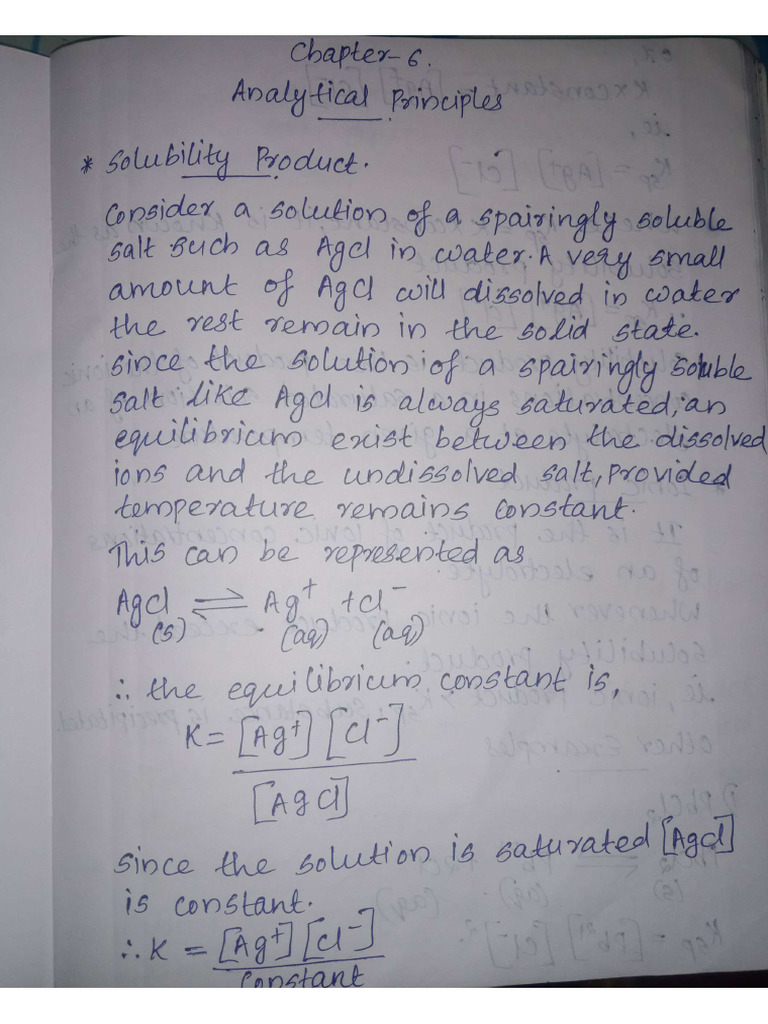 Chapter-6.
Analytical Principles
* Solubility Product.
Consider a solution of a spairingly soluble
salt such as AgCl in water. A very small
amount of AgCl will dissolved in water
the rest remain in the solid state.
Since the solution of a spairingly soluble
salt like AgCl is always saturated, an
equilibrium exist between the dissolved
ions and the undissolved salt, Provided
temperature remains constant.
This can be represented as
AgCl ⇌ Ag⁺ + Cl⁻
(s) (aq) (aq)
∴ the equilibrium constant is,
K = [Ag⁺] [Cl⁻]
[AgCl]
Since the solution is saturated [AgCl]
is constant.
∴ K = [Ag⁺] [Cl⁻]
Constant